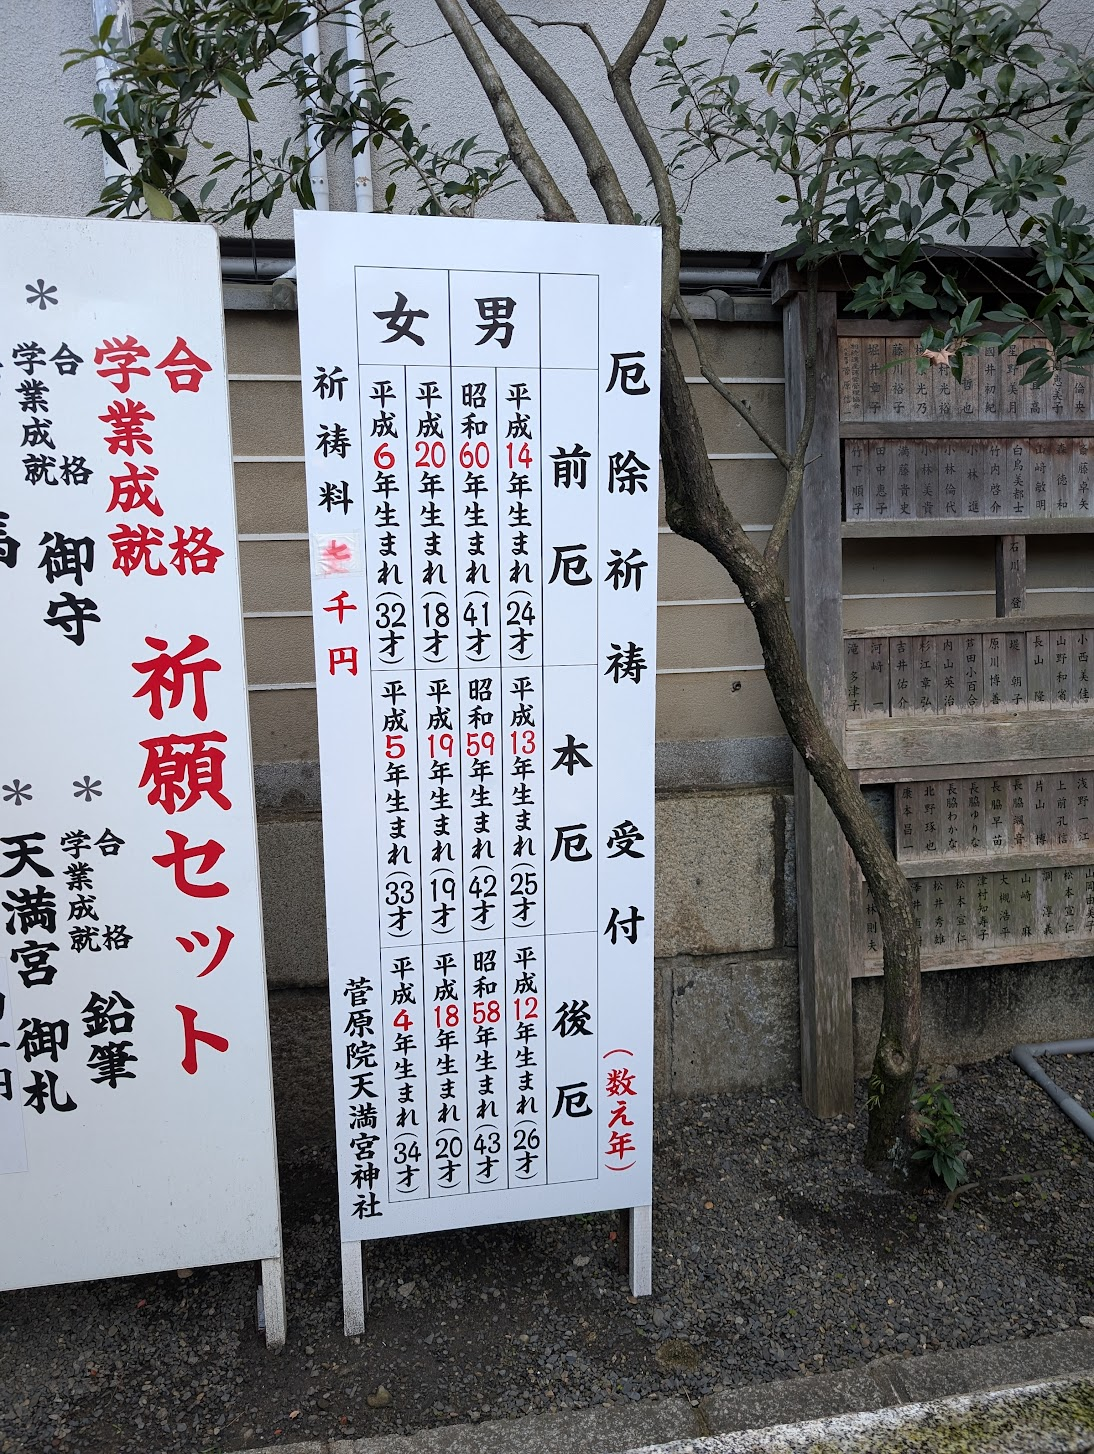 厄除祈祷 受付 (数え年)
前厄
本厄
後厄
男
平成14年生まれ(24才)
平成13年生まれ(25才)
平成12年生まれ(26才)
昭和60年生まれ(41才)
昭和59年生まれ(42才)
昭和58年生まれ(43才)
女
平成20年生まれ(18才)
平成19年生まれ(19才)
平成18年生まれ(20才)
平成6年生まれ(32才)
平成5年生まれ(33才)
平成4年生まれ(34才)
祈祷料 七千円
菅原院天満宮神社
合格
学業成就
祈願セット
*合格
学業成就
御守
*合格
学業成就
鉛筆
*天満宮
御札
小西美佳
山野和省
長山 隆
堤 朝子
原川博善
芦田小百合
内山英治
杉江章弘
吉井佑介
河崎 一
滝 多津子
石川 登
斎藤卓矢
森 徳和
山崎敏明
白鳥美都士
竹内啓介
小林 進
小林倫代
小林美貴
満藤貴史
田中恵子
竹下順子
浅野一江
上前孔信
片山 博
長脇颯音
長脇早苗
長脇ゆりな
長脇わかな
北野琢也
康本昌一
山岡由美子
松本宣仁
山崎 麻
大槻浩平
津村知寿子
松本宣仁
松井秀雄
林則夫